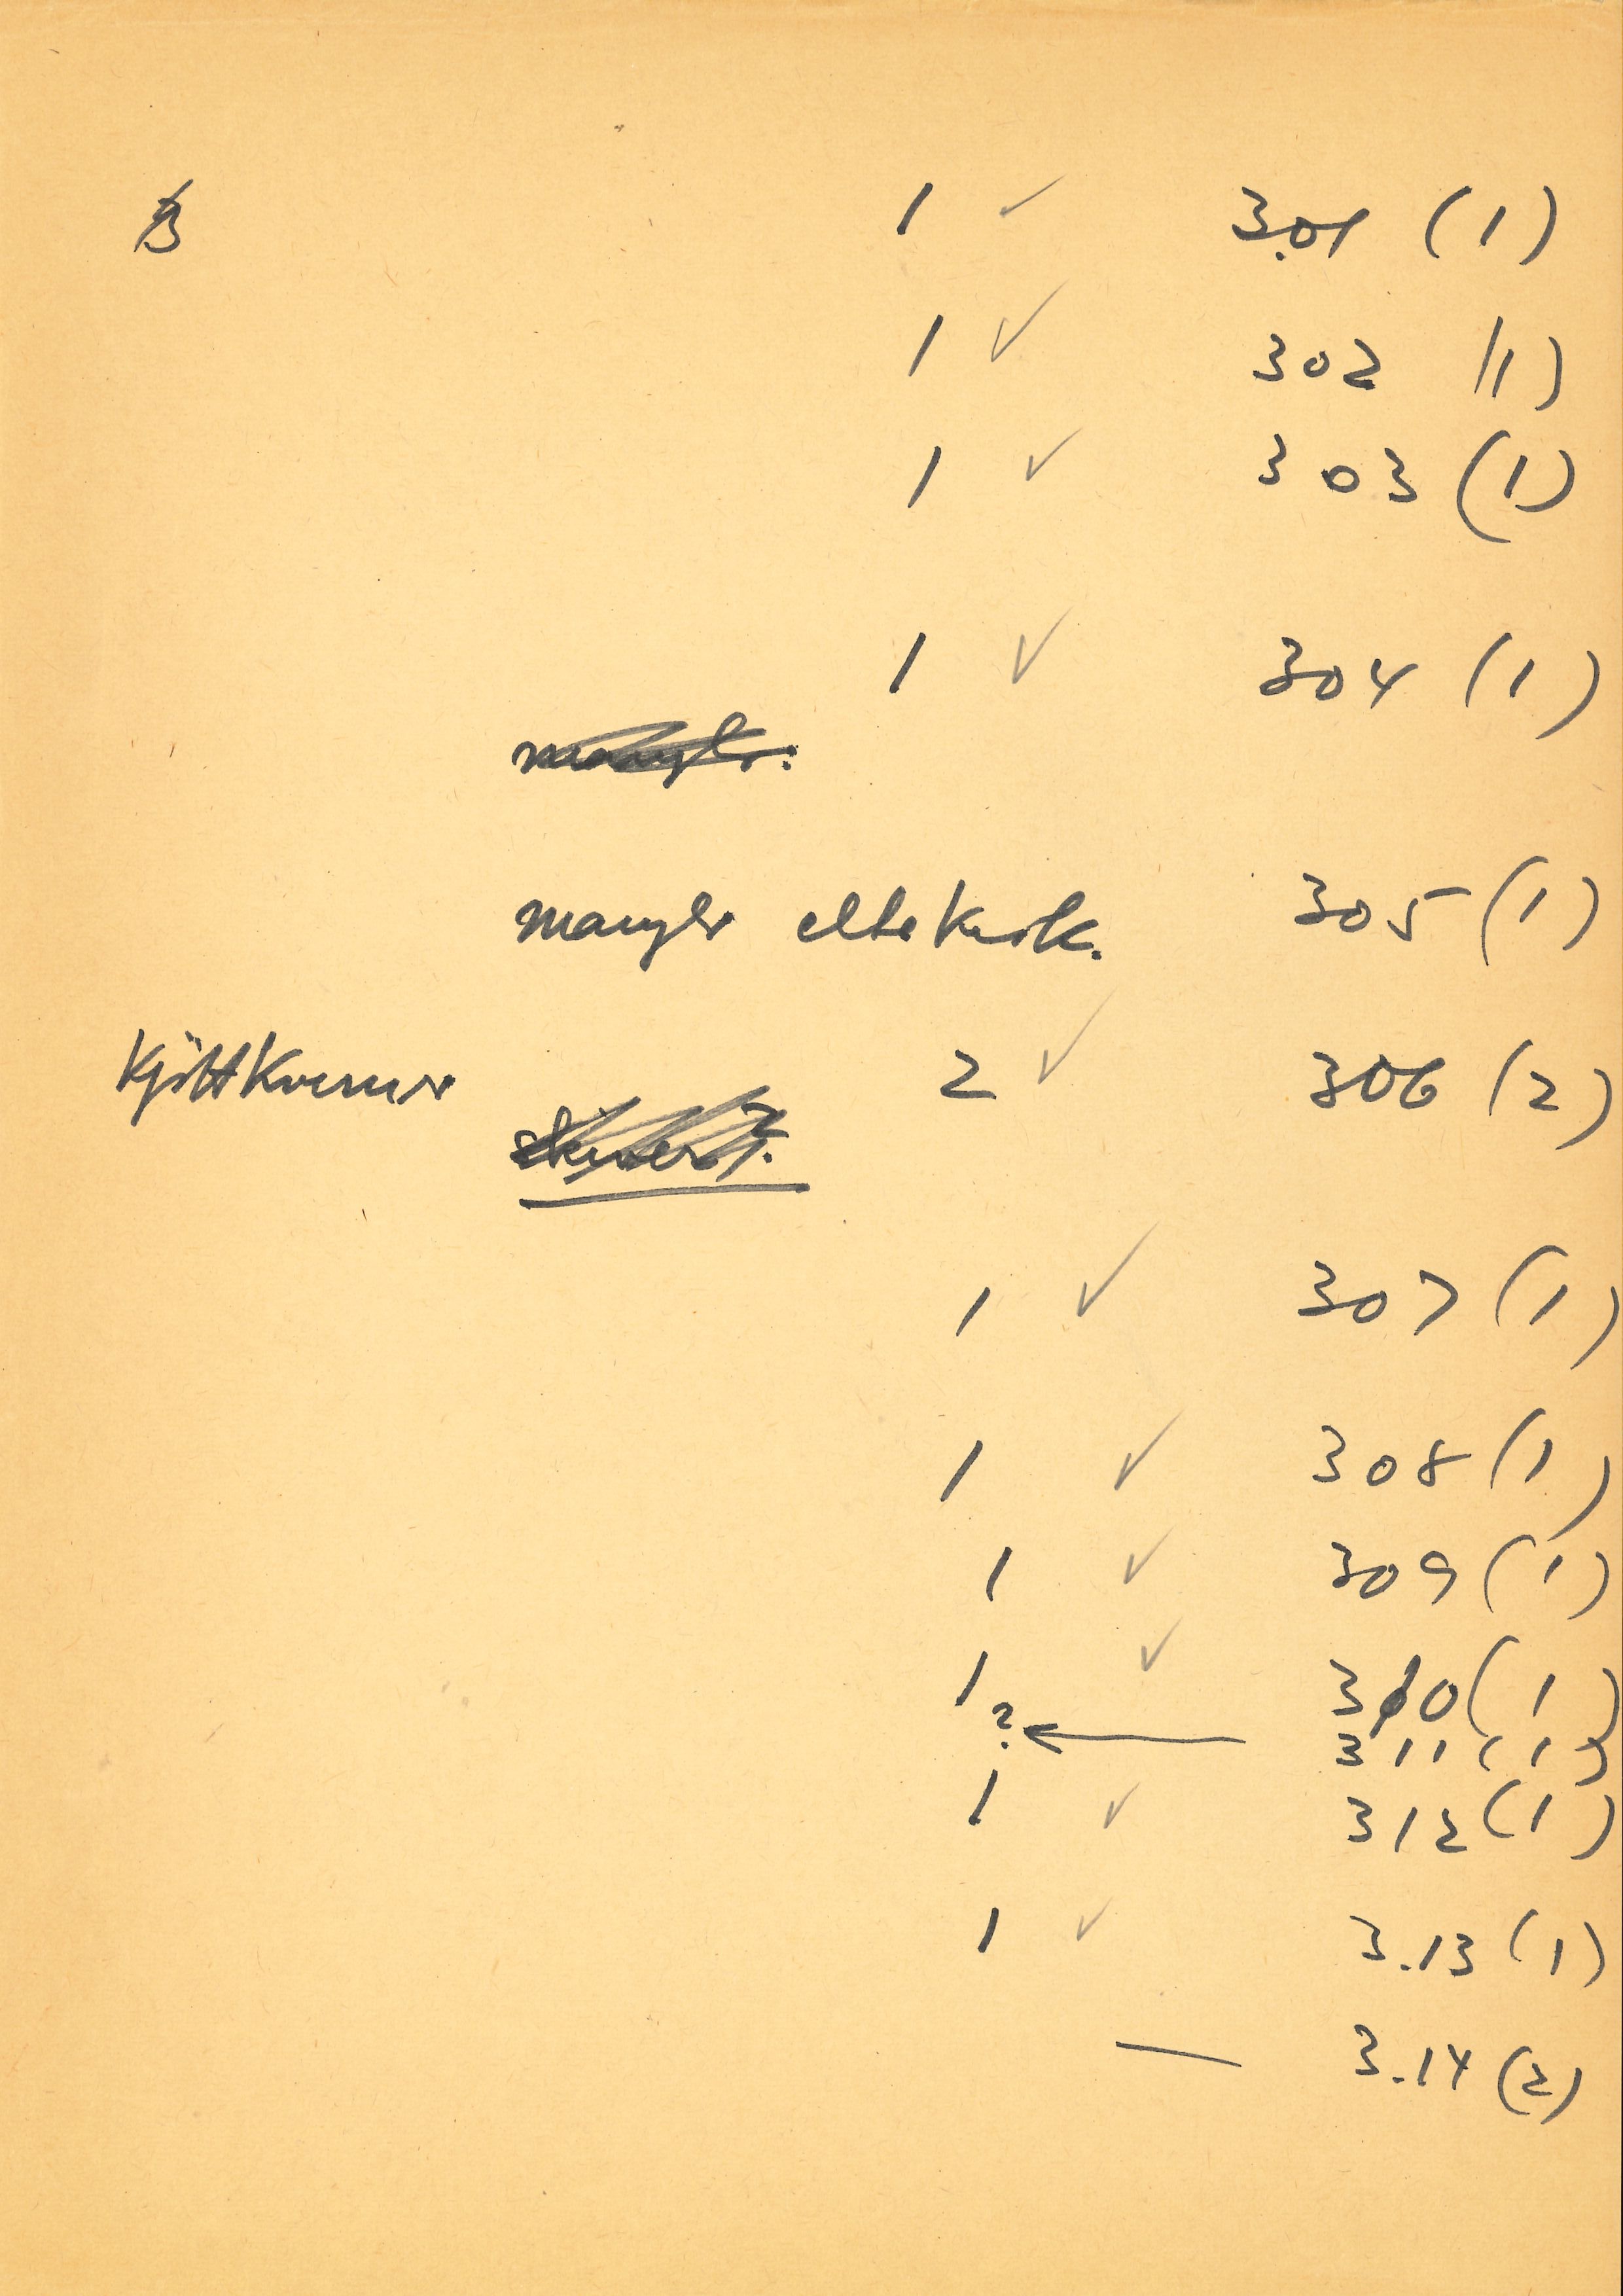 3 1 ✓ 3.01 (1)
1 ✓ 302 (1)
1 ✓ 303 (1)
1 ✓ 304 (1)
mangler.
mangler eltekrok. 305 (1)
Kjöttkverner 2 ✓ 306 (2)
skiver?
1 ✓ 307 (1)
1 ✓ 308 (1)
1 ✓ 309 (1)
1 ✓ 310 (1)
? ← 311 (1)
1 ✓ 312 (1)
1 ✓ 3.13 (1)
— 3.14 (2)